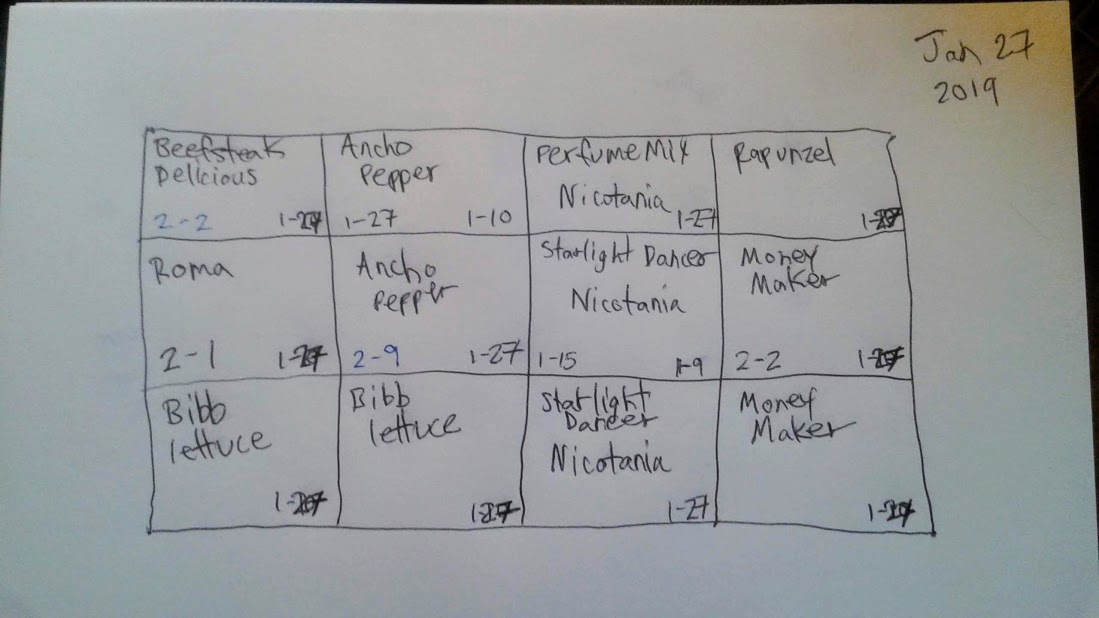 Jan 27
2019
Beefsteak
Delicious
2-2 1-27
Ancho
Pepper
1-27 1-10
Perfume Mix
Nicotania
1-27
Rapunzel
1-27
Roma
2-1 1-27
Ancho
Pepper
2-9 1-27
Starlight Dancer
Nicotania
1-15 1-9
Money
Maker
2-2 1-27
Bibb
lettuce
1-27
Bibb
lettuce
1-27
Starlight
Dancer
Nicotania
1-27
Money
Maker
1-27